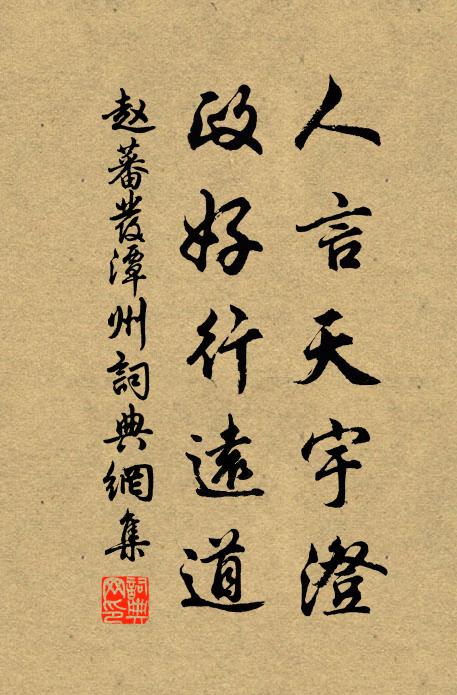 人言天宇澄
政好行遠道
赵蕃發潭州詞典網集
詞典网印